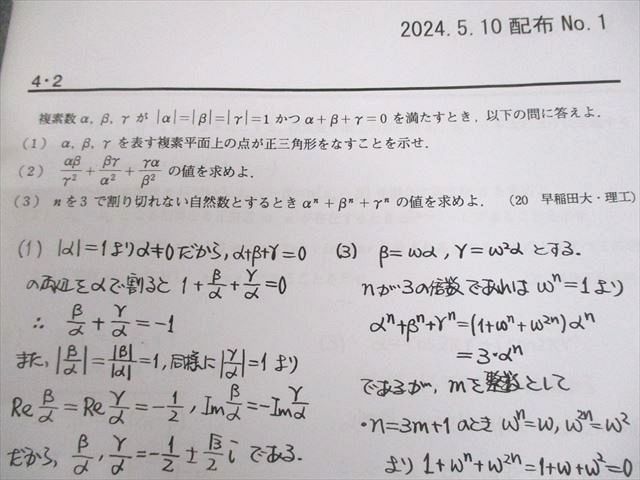 2024.5.10 配布 No.1
4・2
複素数 α, β, γ が |α|=|β|=|γ|=1 かつ α+β+γ=0 を満たすとき, 以下の問に答えよ.
(1) α, β, γ を表す複素平面上の点が正三角形をなすことを示せ.
(2) αβ/γ² + βγ/α² + γα/β² の値を求めよ.
(3) n を 3 で割り切れない自然数とするとき αⁿ+βⁿ+γⁿ の値を求めよ. (20 早稲田大・理工)
(1) |α|=1よりα≠0だから, α+β+γ=0
の両辺をαで割ると 1+β/α+γ/α=0
∴ β/α+γ/α=-1
また, |β/α|=|β|/|α|=1, 同様に|γ/α|=1 より
Re β/α=Re γ/α=-1/2, Im β/α=-Im γ/α
だから, β/α, γ/α=-1/2±√3/2 i である.
(3) β=ωα, γ=ω²α とする.
nが3の倍数であれば ωⁿ=1 より
αⁿ+βⁿ+γⁿ=(1+ωⁿ+ω²ⁿ)αⁿ
=3・αⁿ
であるが, mを整数として
・n=3m+1 のとき ωⁿ=ω, ω²ⁿ=ω²
より 1+ωⁿ+ω²ⁿ=1+ω+ω²=0